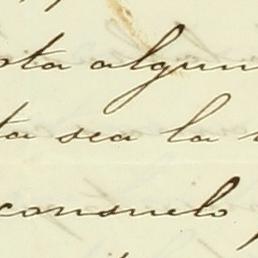 ota algun
ta sea la
consuelo